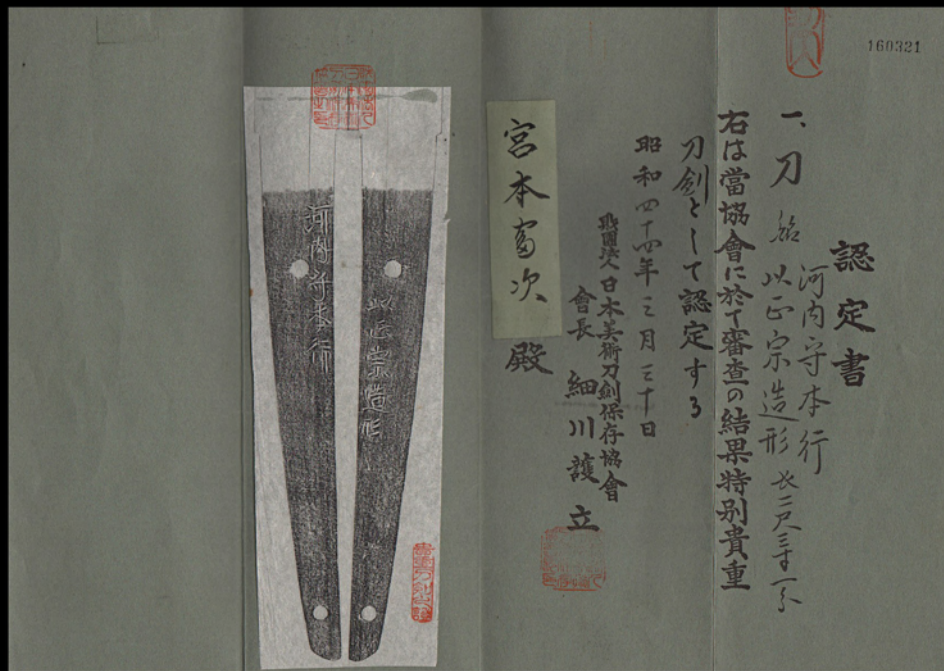 160321
認定書
一、刀 銘 河内守本行
以正宗造形 長二尺三寸一分
右は當協會に於て審査の結果特別貴重
刀劍として認定する
昭和四十四年三月三十日
財團法人日本美術刀劍保存協會
會長 細川護立
宮本富次殿
河内守本行
以正宗造形